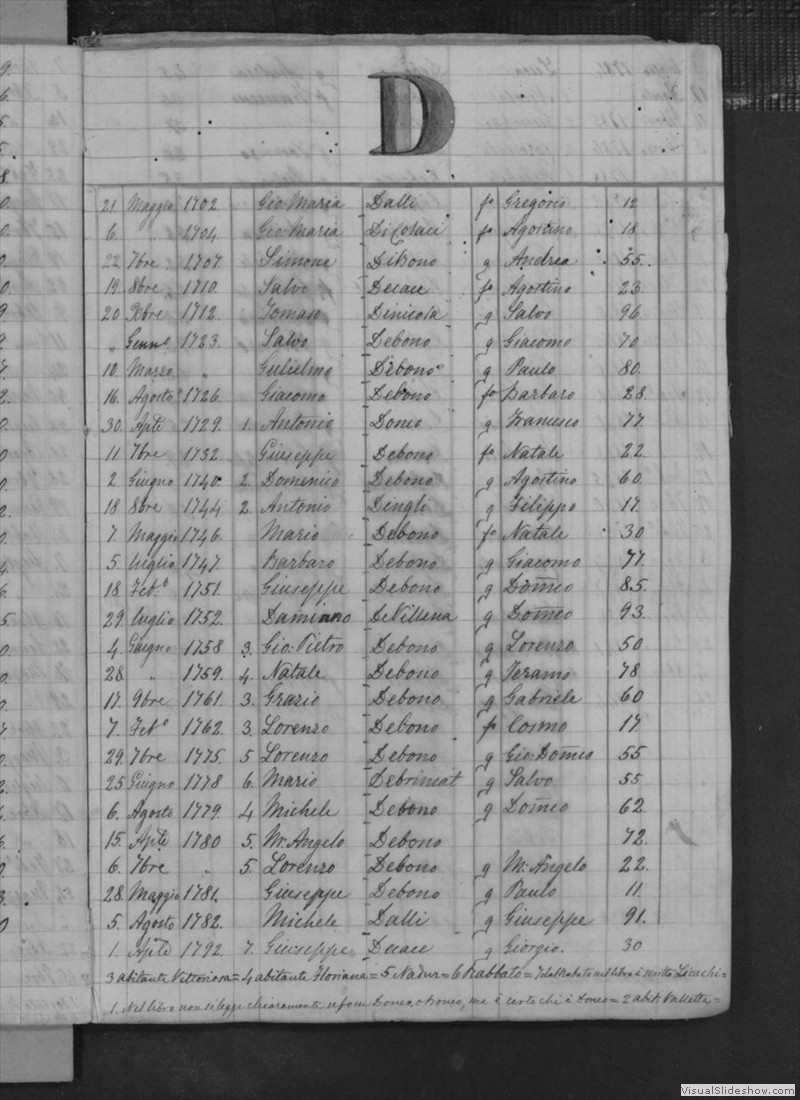 D
21. Maggio 1702. Gio: Maria Dalli fo Gregorio 12
6. „ 1704. Gio: Maria DiColaci fo Agostino 18
22. 7bre 1707. Simone DiBono g Andrea 55.
19. 8bre 1710. Salvo Decace fo Agostino 23
20 Xbre 1712 Tomaso Dinicola g Salvo 96
„ Genno. 1723. Salvo Debono g Giacomo 70
10 Marzo „ Gulielmo Debono g Paulo 80.
16. Agosto 1726. Giacomo Debono fo Barbaro 28.
30. Aple 1729. 1. Antonio Domeo g Francesco 77.
11 7bre 1732. Giuseppe Debono fo Natale 22.
2. Giugno 1740. 2. Domenico Debono g Agostino 60.
18. 8bre 1744 2. Antonio Dingli g Filippo 17.
7. Maggio 1746. Mario Debono fo Natale 30
5. Luglio 1747. Barbaro Debono g Giacomo 77.
18. Febo 1751. Giuseppe Debono g Domeo 85.
29. luglio 1752. Damiano DeVillena g Domeo 93.
4. Giugno 1758 3. Gio: Pietro Debono g Lorenzo 50
28. „ 1759. 4. Natale Debono g Teramo 78
17. 9bre 1761. 3. Grazio Debono g Gabriele 60
7. Febo 1762. 3. Lorenzo Debono fo Cosmo 17
29. 7bre 1775. 5 Lorenzo Debono g Gio: Domeo 55
25. Giugno 1778 6. Mario Debrincat g Salvo 55
6. Agosto 1779. 4 Michele Debono g Domeo 62.
15. Aple 1780 5. M: Angelo Debono 72.
6. 7bre „ 5. Lorenzo Debono g M: Angelo 22.
28. Maggio 1781. Giuseppe Debono g Paulo 11.
5. Agosto 1782. Michele Dalli g Giuseppe 91.
1. Aple 1792. 7. Giuseppe Decace g Giorgio. 30
3 abitante Vittoriosa = 4 abitante Floriana = 5 Nadur = 6 Rabbato = 7 del Rabato nel libro è scritto =
1. Nel libro non si legge chiaramente se fosse Domeo, o Bomeo, ma è certo chi è Domeo = 2 abit: Valletta =
VisualSlideshow.com